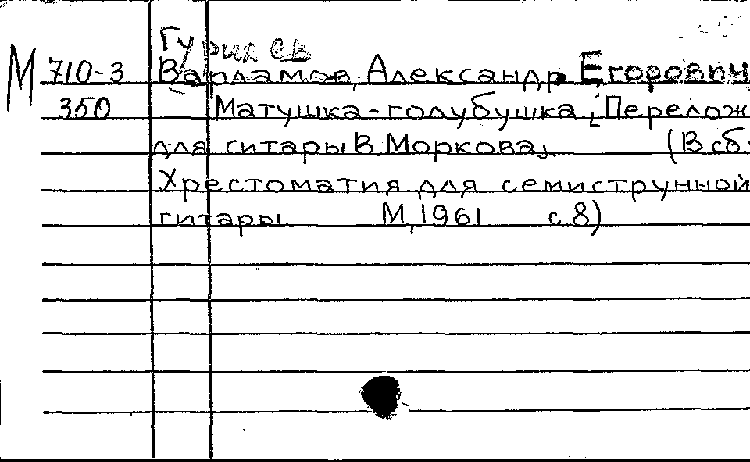 Гурилев
М 710-3 Варламов, Александр Егорович
350 Матушка-голубушка, [Перелож
для гитары В. Моркова] (В сб.
Хрестоматия для семиструнной
гитары М, 1961 с. 8)